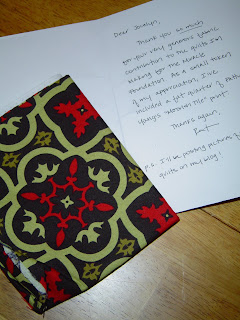 Dear Jocelyn,
Thank you so much
for your very generous fabric
contribution to the quilts I'm
making for the Miracle
Foundation. As a small token
of my appreciation, I've
included a fat quarter of Patty
Young's "Moroccan Tiles" print.
Thanks again,
p.s. I'll be posting pictures of
quilts on my blog!